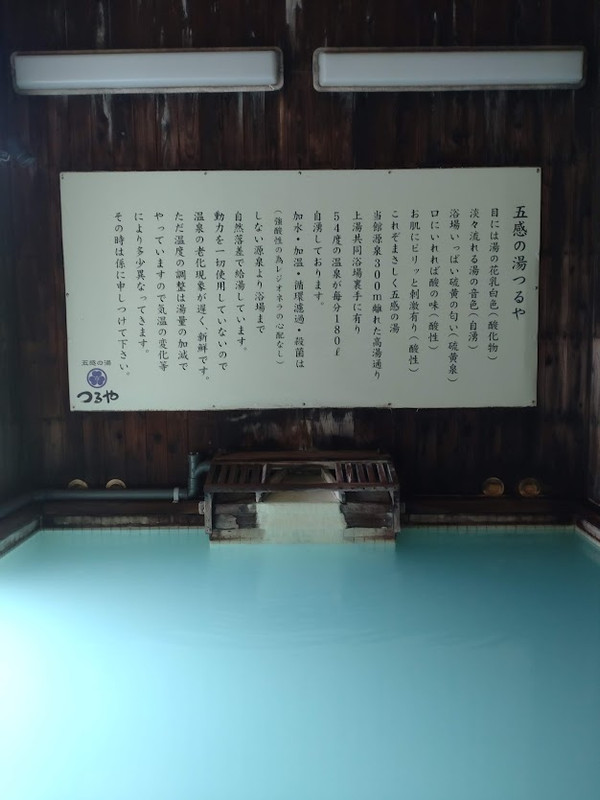 五感の湯つるや
目には湯の花乳白色(酸化物)
淡々流れる湯の音色(自湧)
浴場いっぱい硫黄の匂い(硫黄泉)
口にいれれば酸の味(酸性)
お肌にピリッと刺激有り(酸性)
これぞまさしく五感の湯
当館源泉300m離れた高湯通り
上湯共同浴場裏手に有り
54度の温泉が毎分180ℓ
自湧しております。
加水・加温・循環濾過・殺菌は
(強酸性の為レジオネラの心配なし)
しない源泉より浴場まで
自然落差で給湯しています。
動力を一切使用していないので
温泉の老化現象が遅く、新鮮です。
ただ温度の調整は湯量の加減で
やっていますので気温の変化等
により多少異なってきます。
その時は係に申しつけて下さい。
五感の湯
つるや